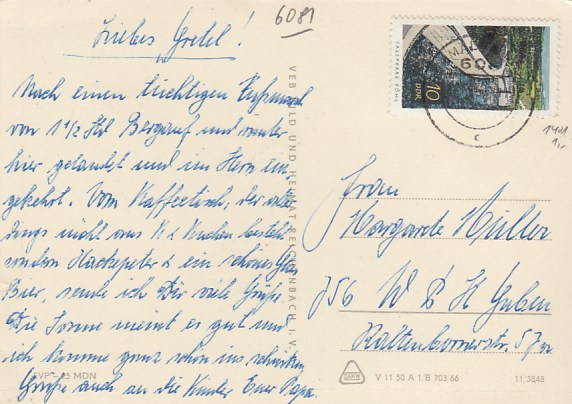 6081
Liebes Gretel!
Nach einen tüchtigen Fußmarsch
von 1 1/2 Std Bergauf und runter
hier gelandet und im Hern ein
gekehrt. Vom Kaffeetisch, der aller
dings nicht aus K & Kuchen besteht
sondern Hackepeter & ein schönes Glas
Bier, sende ich Dir viele Grüße.
Die Sonne meint es gut und
ich komme ganz schön ins schwitzen
Grüße auch an die Kinder Euer Papa.
EVP MDN
VEB BILD UND HEIMAT REICHENBACH I. V.
10
DDR
1401
Frau
Margarete Müller
756 W P St Guben
Kaltenbornerstr. 57
V 11 50 A 1/B 703/66
11/3848